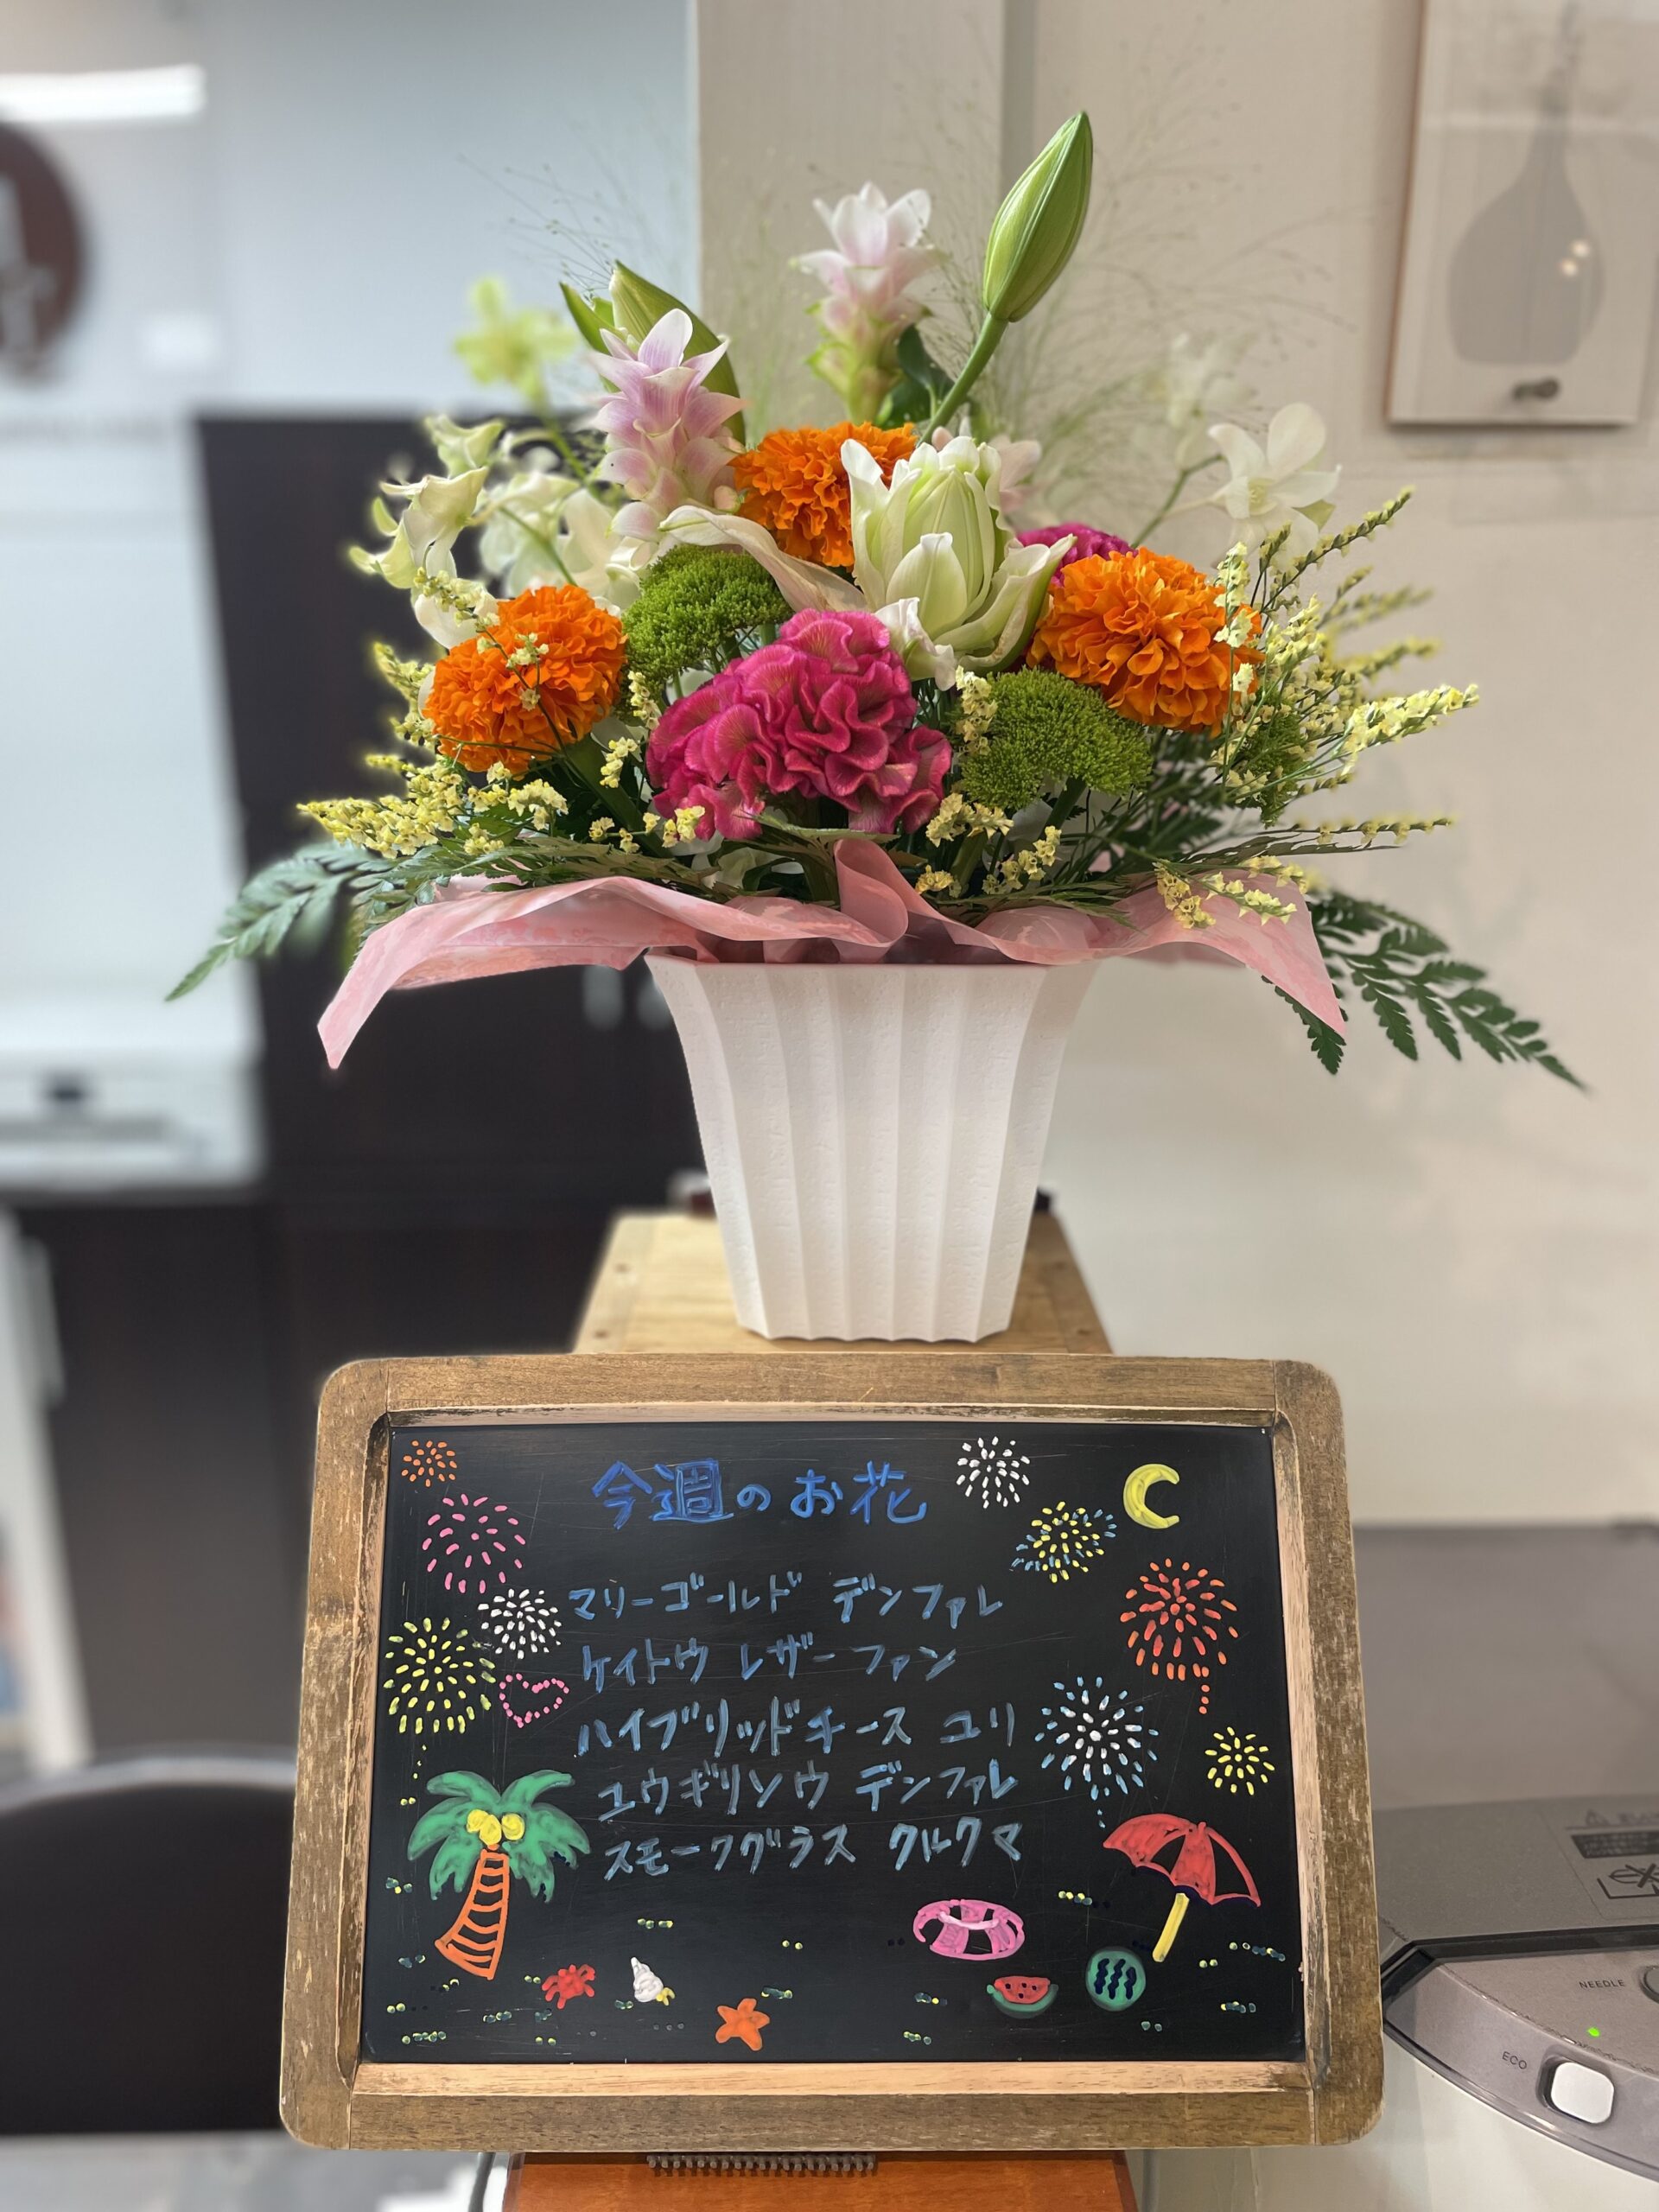 今週のお花
マリーゴールド デンファレ
ケイトウ レザーファン
ハイブリッドチース ユリ
ユウギリソウ デンファレ
スモークグラス クルクマ
NEEDLE
ECO